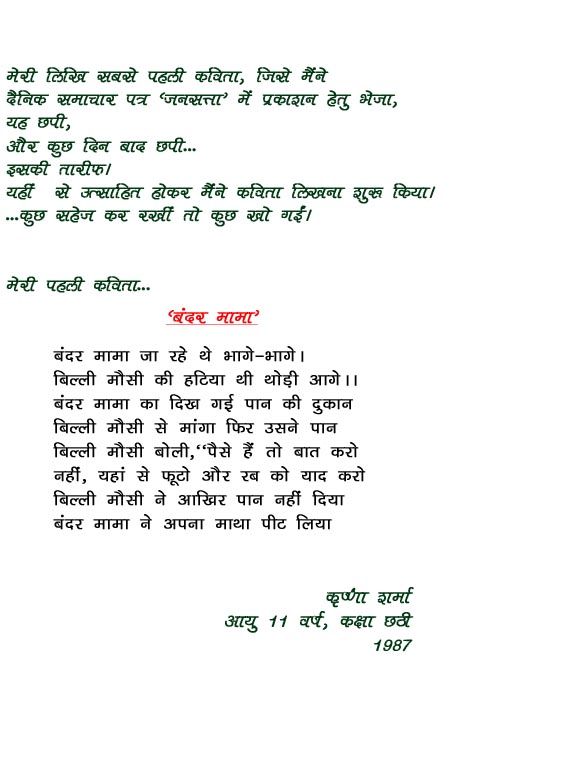 मेरी लिखि सबसे पहली कविता, जिसे मैंने
दैनिक समाचार पत्र ‘जनसत्ता’ में प्रकाशन हेतु भेजा,
यह छपी,
और कुछ दिन बाद छपी...
इसकी तारीफ।
यहीं से उत्साहित होकर मैंने कविता लिखना शुरू किया।
...कुछ सहेज कर रखीं तो कुछ खो गईं।
मेरी पहली कविता...
‘बंदर मामा’
बंदर मामा जा रहे थे भागे-भागे।
बिल्ली मौसी की हटिया थी थोड़ी आगे।।
बंदर मामा का दिख गई पान की दुकान
बिल्ली मौसी से मांगा फिर उसने पान
बिल्ली मौसी बोली,‘‘पैसे हैं तो बात करो
नहीं, यहां से फूटो और रब को याद करो
बिल्ली मौसी ने आखिर पान नहीं दिया
बंदर मामा ने अपना माथा पीट लिया
कृष्णा शर्मा
आयु 11 वर्ष, कक्षा छठी
1987